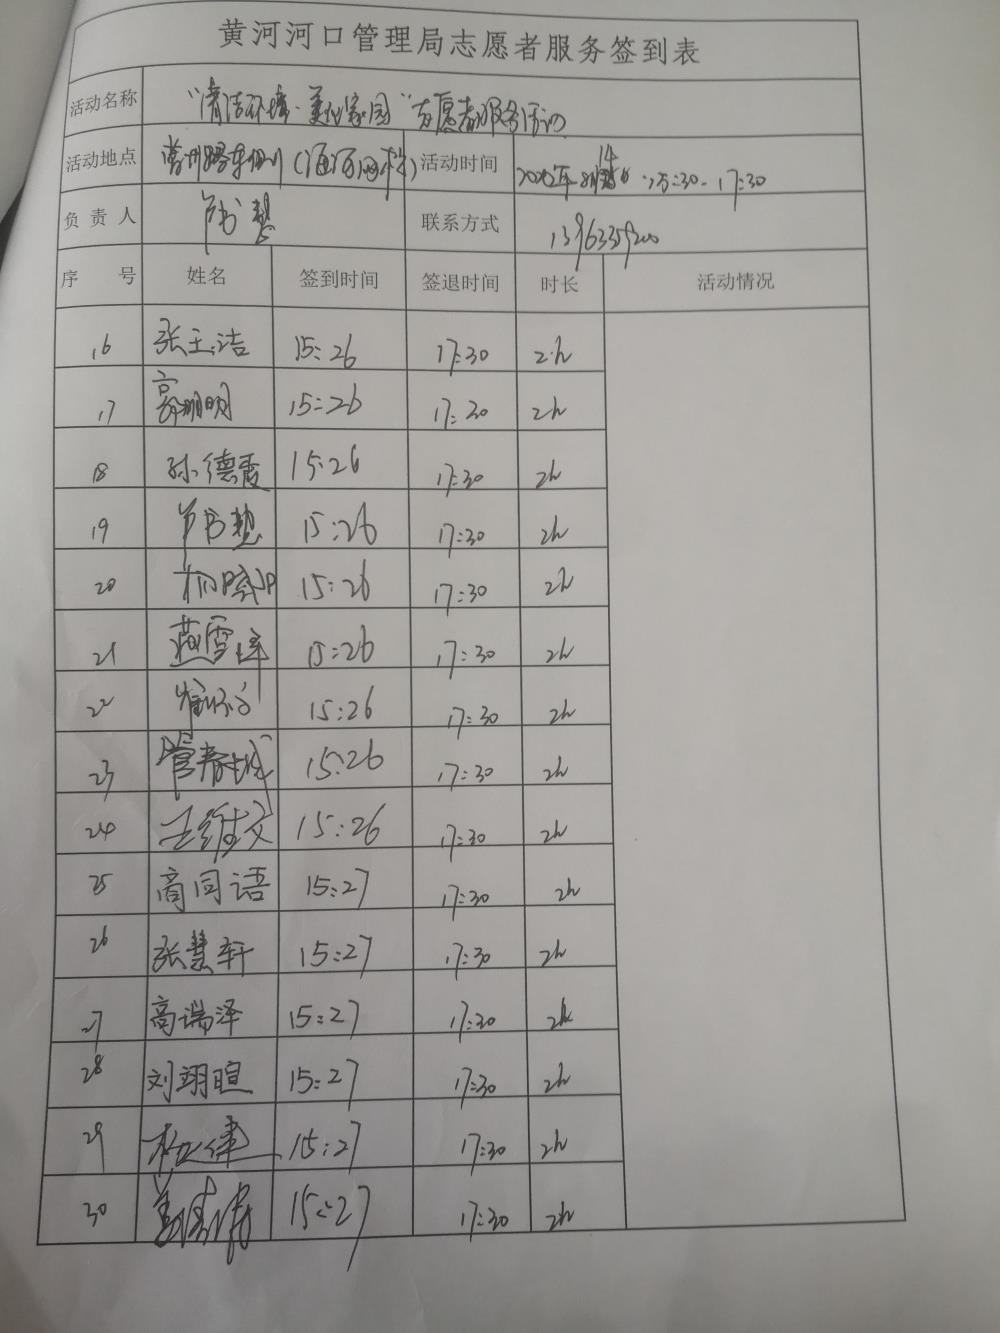 黄河河口管理局志愿者服务签到表
活动名称 "清洁环境·美化家园"志愿者服务活动
活动地点 活动时间 15:30-17:30
负责人 联系方式
序号 姓名 签到时间 签退时间 时长 活动情况
16 张玉洁 15:26 17:30 2h
17 15:26 17:30 2h
18 孙德霞 15:26 17:30 2h
19 15:26 17:30 2h
20 15:26 17:30 2h
21 15:26 17:30 2h
22 15:26 17:30 2h
23 管春城 15:26 17:30 2h
24 王维文 15:26 17:30 2h
25 高同语 15:27 17:30 2h
26 张慧轩 15:27 17:30 2h
27 高瑞泽 15:27 17:30 2h
28 刘翊暄 15:27 17:30 2h
29 15:27 17:30 2h
30 15:27 17:30 2h